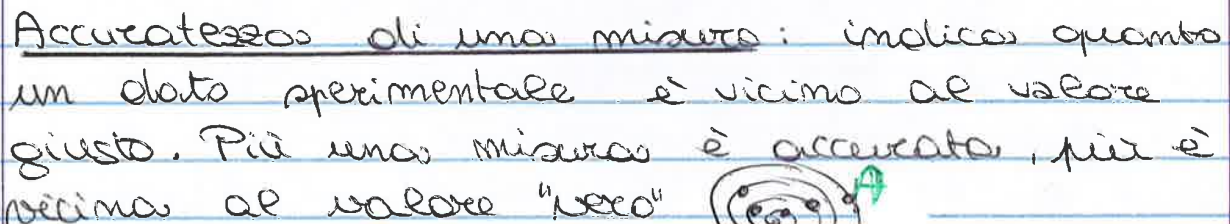 Accuratezza di una misura: indica quanto
un dato sperimentale è vicino al valore
giusto. Più una misura è accurata, più è
vicina al valore "vero" A